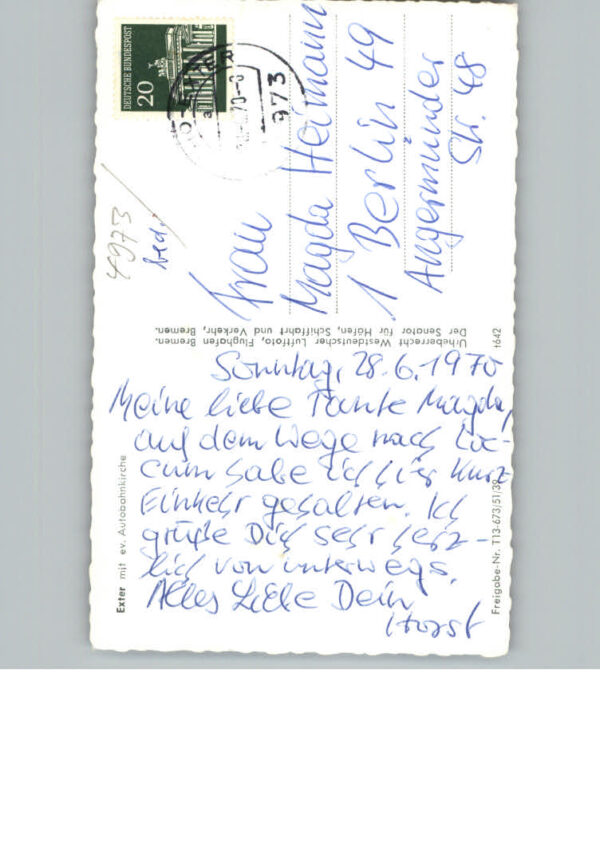 Sonntag, 28.6.1970
Meine liebe Tante Magda,
auf dem Wege nach Loc-
cum habe ich hier kurz
Einkehr gehalten. Ich
grüße Dich sehr herz-
lich von unterwegs.
Alles Liebe Dein
Horst
Frau
Magda Heimann
1 Berlin 49
Angermünder
Str. 48
DEUTSCHE BUNDESPOST
20
973
4973
bed.
Exter mit ev. Autobahnkirche
Urheberrecht Westdeutscher Luftfoto, Flughafen Bremen.
Der Senator für Häfen, Schiffahrt und Verkehr, Bremen.
t642
Freigabe-Nr. T13-673/51/39